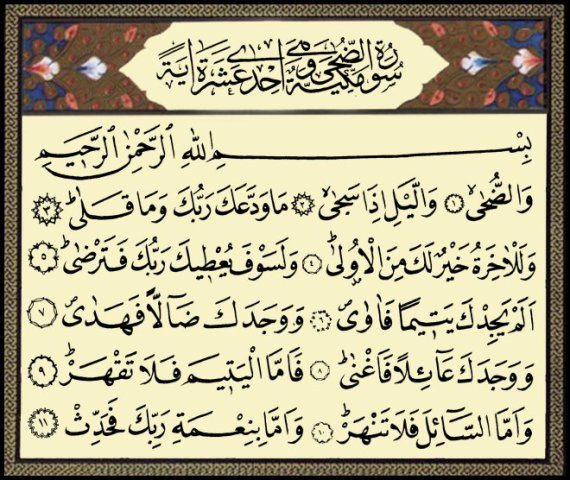 سورة الضحى مكية وهي احدى عشرة آية
بِسْمِ اللهِ الرَّحْمٰنِ الرَّحٖيمِ
وَالضُّحٰىۙ ﴿١﴾ وَالَّيْلِ اِذَا سَجٰىۙ ﴿٢﴾ مَا وَدَّعَكَ رَبُّكَ وَمَا قَلٰىۜ ﴿٣﴾
وَلَلْاٰخِرَةُ خَيْرٌ لَكَ مِنَ الْاُو۫لٰىۜ ﴿٤﴾ وَلَسَوْفَ يُعْطٖيكَ رَبُّكَ فَتَرْضٰىۜ ﴿٥﴾
اَلَمْ يَجِدْكَ يَتٖيمًا فَاٰوٰىۖ ﴿٦﴾ وَوَجَدَكَ ضَٓالًّا فَهَدٰىۖ ﴿٧﴾
وَوَجَدَكَ عَٓائِلًا فَاَغْنٰىۜ ﴿٨﴾ فَاَمَّا الْيَتٖيمَ فَلَا تَقْهَرْۜ ﴿٩﴾
وَاَمَّا السَّٓائِلَ فَلَا تَنْهَرْۜ ﴿١٠﴾ وَاَمَّا بِنِعْمَةِ رَبِّكَ فَحَدِّثْ ﴿١١﴾